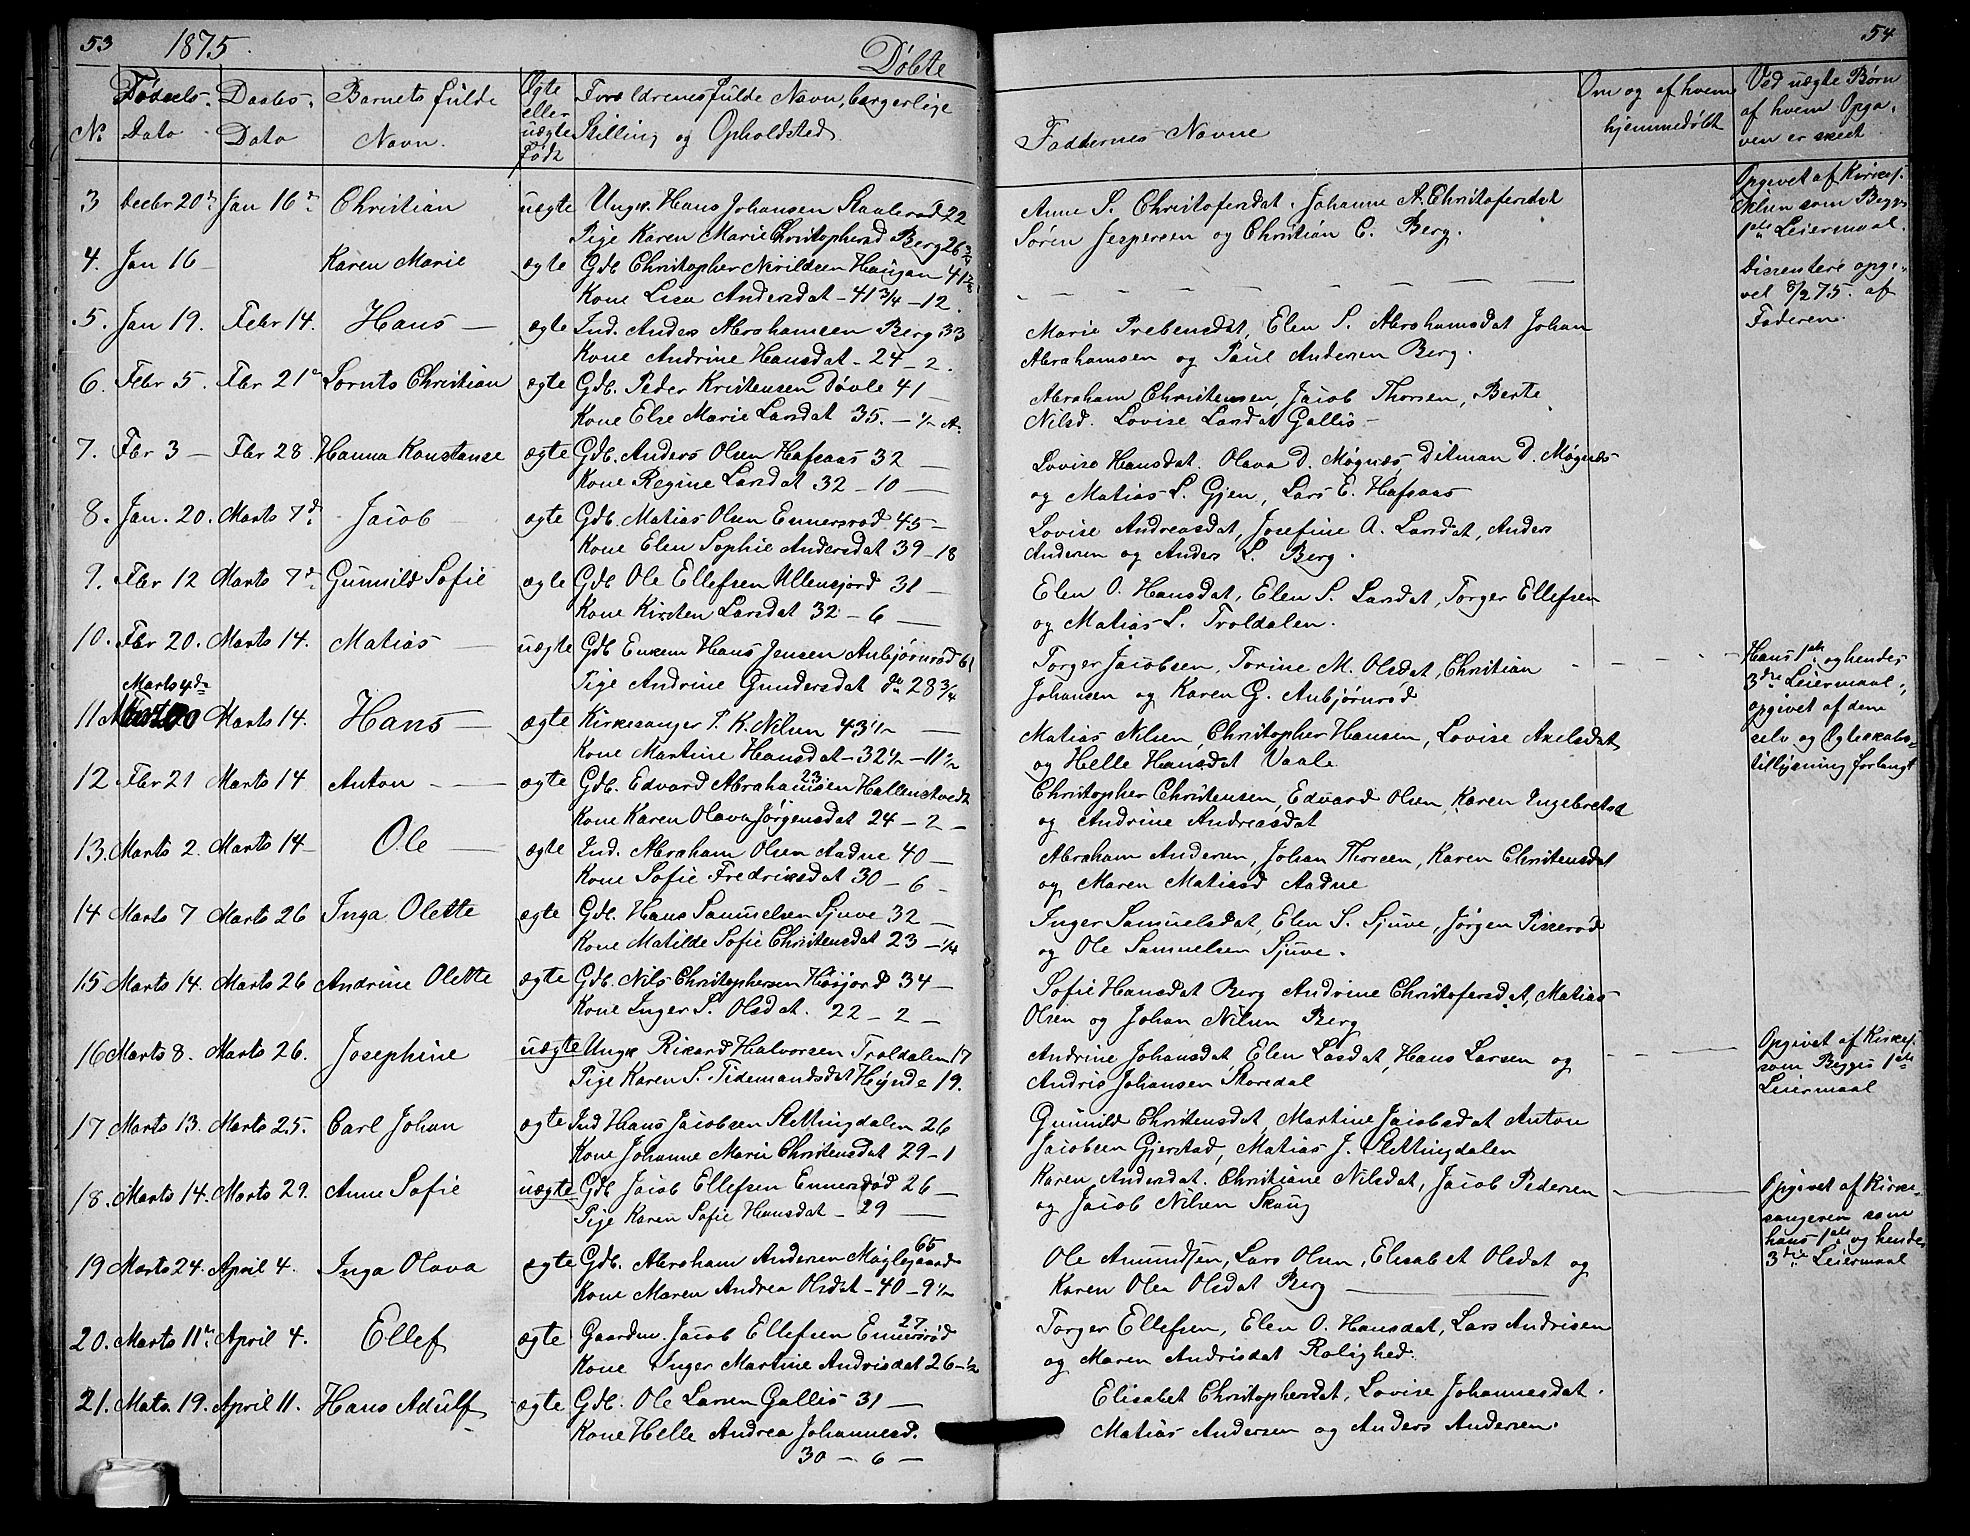 53 1875. Døbte
No. Fødsels-Dato Daabs-Dato Barnets fulde Navn. Ægte eller uægte Født Forældrenes fulde Navn, borgerlige Stilling og Opholdsted
3 Decbr 20de Jan 16de Christian uægte Ungk. Hans Johansen 22
Pige Karen Marie Christophersd Berg 26 3/4
4. Jan 16 — Karen Marie ægte Gdb Christopher Haugan 41
Kone Lisa Andersdat - 41 3/4 - 12.
5. Jan 19. Febr 14. Hans — ægte Ind. Anders Abrahamsen Berg 33
Kone Andrine Hansdat - 24 - 2.
6. Febr 5. Fbr 21de Lornts Christian ægte Gdb. Peder Kristensen Døvle 41 —
Kone Else Marie Larsdat 35. - ½ A.
7. Fbr 3 — Fbr 28. Hanna Konstanse ægte Gdb. Anders Olsen Hafsaas 32 —
Kone Regine Larsdat 32 - 10 —
8. Jan. 20. Marts 7de Jacob — ægte Gdb. Matias Olsen Ennersrød 45 —
Kone Elen Sophie Andersdat 39 - 18
9. Fbr 12 Marts 7de Gunnild Sofie ægte Gdb Ole Ellefsen Ullensjord 31 —
Kone Kirsten Larsdat 32 - 6 —
10. Fbr 20. Marts 14. Matias — uægte Gdb Enkem Hans Jensen Anbjørnrød 61
Pige Andrine Gundersdat do 28 3/4
Marts 4de
11 Marts 14. Hans — ægte Kirkesanger P. K. Nilsen 43½ —
Kone Martine Hansdat - 32½ - 11½
12 Fbr 21 Marts 14 Anton — ægte Gdb. Edvard Abrahamsen Hallenstvedt 23
Kone Karen Olava Jørgensdat 24 - 2 —
13. Marts 2. Marts 14 — Ole — ægte Ind. Abraham Olsen Aadne 40 —
Kone Sofie Fredriksdat 30 - 6 —
14 Marts 7 Marts 26 Inga Olette ægte Gdb. Hans Samuelsen Sjuve 32 —
Kone Matilde Sofie Christensdat 23 - ¼
15 Marts 14. Marts 26 Andrine Olette ægte Gdb. Nils Christophersen 34 —
Kone Inger S. Olsdat. 22 - 2 —
16 Marts 8. Marts 26. Josephine uægte Ungk Rikard Halvorsen Troldalen 17
Pige Karen S. Tidemandsdat Hynde 19.
17. Marts 13. Marts 25. Carl Johan ægte Ind Hans Jacobsen Slettingdalen 26
Kone Johanne Marie Christensdat 29 - 1
18. Marts 14. Marts 29. Anne Sofie uægte Gdb Jacob Ellefsen Ennersrød 26 —
Pige Karen Sofie Hansdat - 29 —
19 Marts 24. April 4. Inga Olava ægte Gdb. Abraham Andersen Møglegaard 65
Kone Maren Andrea Olsdat - 40 - 9½
20. Marts 11te April 4. Ellef ægte Gaardm. Jacob Ellefsen Ennersrød 27
Kone Inger Martine Andrisdat 26 - ½
21. Mats. 19. April 11. Hans Adulf ægte Gdb. Ole Larsen Gallis 31 —
Kone Helle Andrea Johannesd.
30 - 6 —
54
Faddernes Navne Om og af hvem hjemmedøbt Ved uægte Børn af hvem Opgaven er skeet
Anne S. Christofersdat. Johanne A. Christofersdat
Søren Jespersen og Christian C. Berg.
Opgivet af Kirkesf.
som Begges
1ste Leiermaal.
Dissentere opgi-
vet 8/2 75. af
Faderen.
Marie Prebensdat, Elen S. Abrahamsdat Johan
Abrahamsen og Paul Andersen Berg.
Abraham Christensen, Jacob Thorsen, Berte
Nilsd. Lovise Larsdat Gallis —
Lovise Hansdat. Olava D. Møgnæs, Ditman D. Møgnæs
og Matias L. Gjen, Lars E. Hafsaas
Lovise Andreasdat, Josefine A. Larsdat, Anders
Andersen og Anders L. Berg.
Elen O. Hansdat, Elen S. Larsdat, Torger Ellefsen
og Matias L. Troldalen.
Torger Jacobsen, Torine M. Olsdat, Christian
Johansen og Karen G. Anbjørnrød
Hans 1ste og hendes
3die Leiermaal,
opgivet af dem
selv og Ægteskabs-
tillysning forlangt
Matias Nilsen, Christopher Hansen, Lovise Axelsdat
og Helle Hansdat Vaale
Christopher Christensen, Edvard Olsen, Karen Ingebretsd
og Andrine Andreasdat
Abraham Andersen, Johan Thorsen, Karen Christensdat
og Maren Matiasd Aadne
Inger Samuelsdat, Elen S. Sjuve, Jørgen Piskerød
og Ole Samuelsen Sjuve.
Sofie Hansdat Berg Andrine Christofersdat, Matias
Olsen og Johan Nilsen Berg
Andrine Johansdat, Elen Lasdat, Hans Larsen og
Andris Johansen Storedal
Opgivet af Kirkesf.
som Begges 1ste
Leiermaal
Gunnild Christensdat, Martine Jacobsdat Anton
Jacobsen Gjerstad, Matias J. Slettingdalen
Karen Andersdat. Christiane Nilsdat, Jacob Pedersen
og Jacob Nilsen Skaug
Opgivet af Kirke-
sangeren som
hans 1ste og hendes
3die Leiermaal
Ole Amundsen, Lars Olsen, Elisabet Olsdat og
Karen Olea Olsdat Berg
Torger Ellefsen, Elen O. Hansdat, Lars Andrisen
og Maren Andrisdat Rolighed.
Elisabet Christophersdat, Lovise Johannesdat.
Matias Andersen og Anders Andersen.